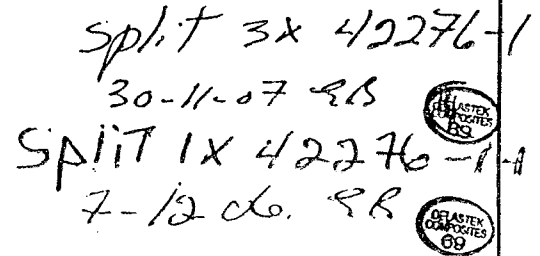 split 3x 42276-1
30-11-07
DELASTEK
COMPOSITES
69
Split 1x 42276-1-1
7-12
DELASTEK
COMPOSITES
69